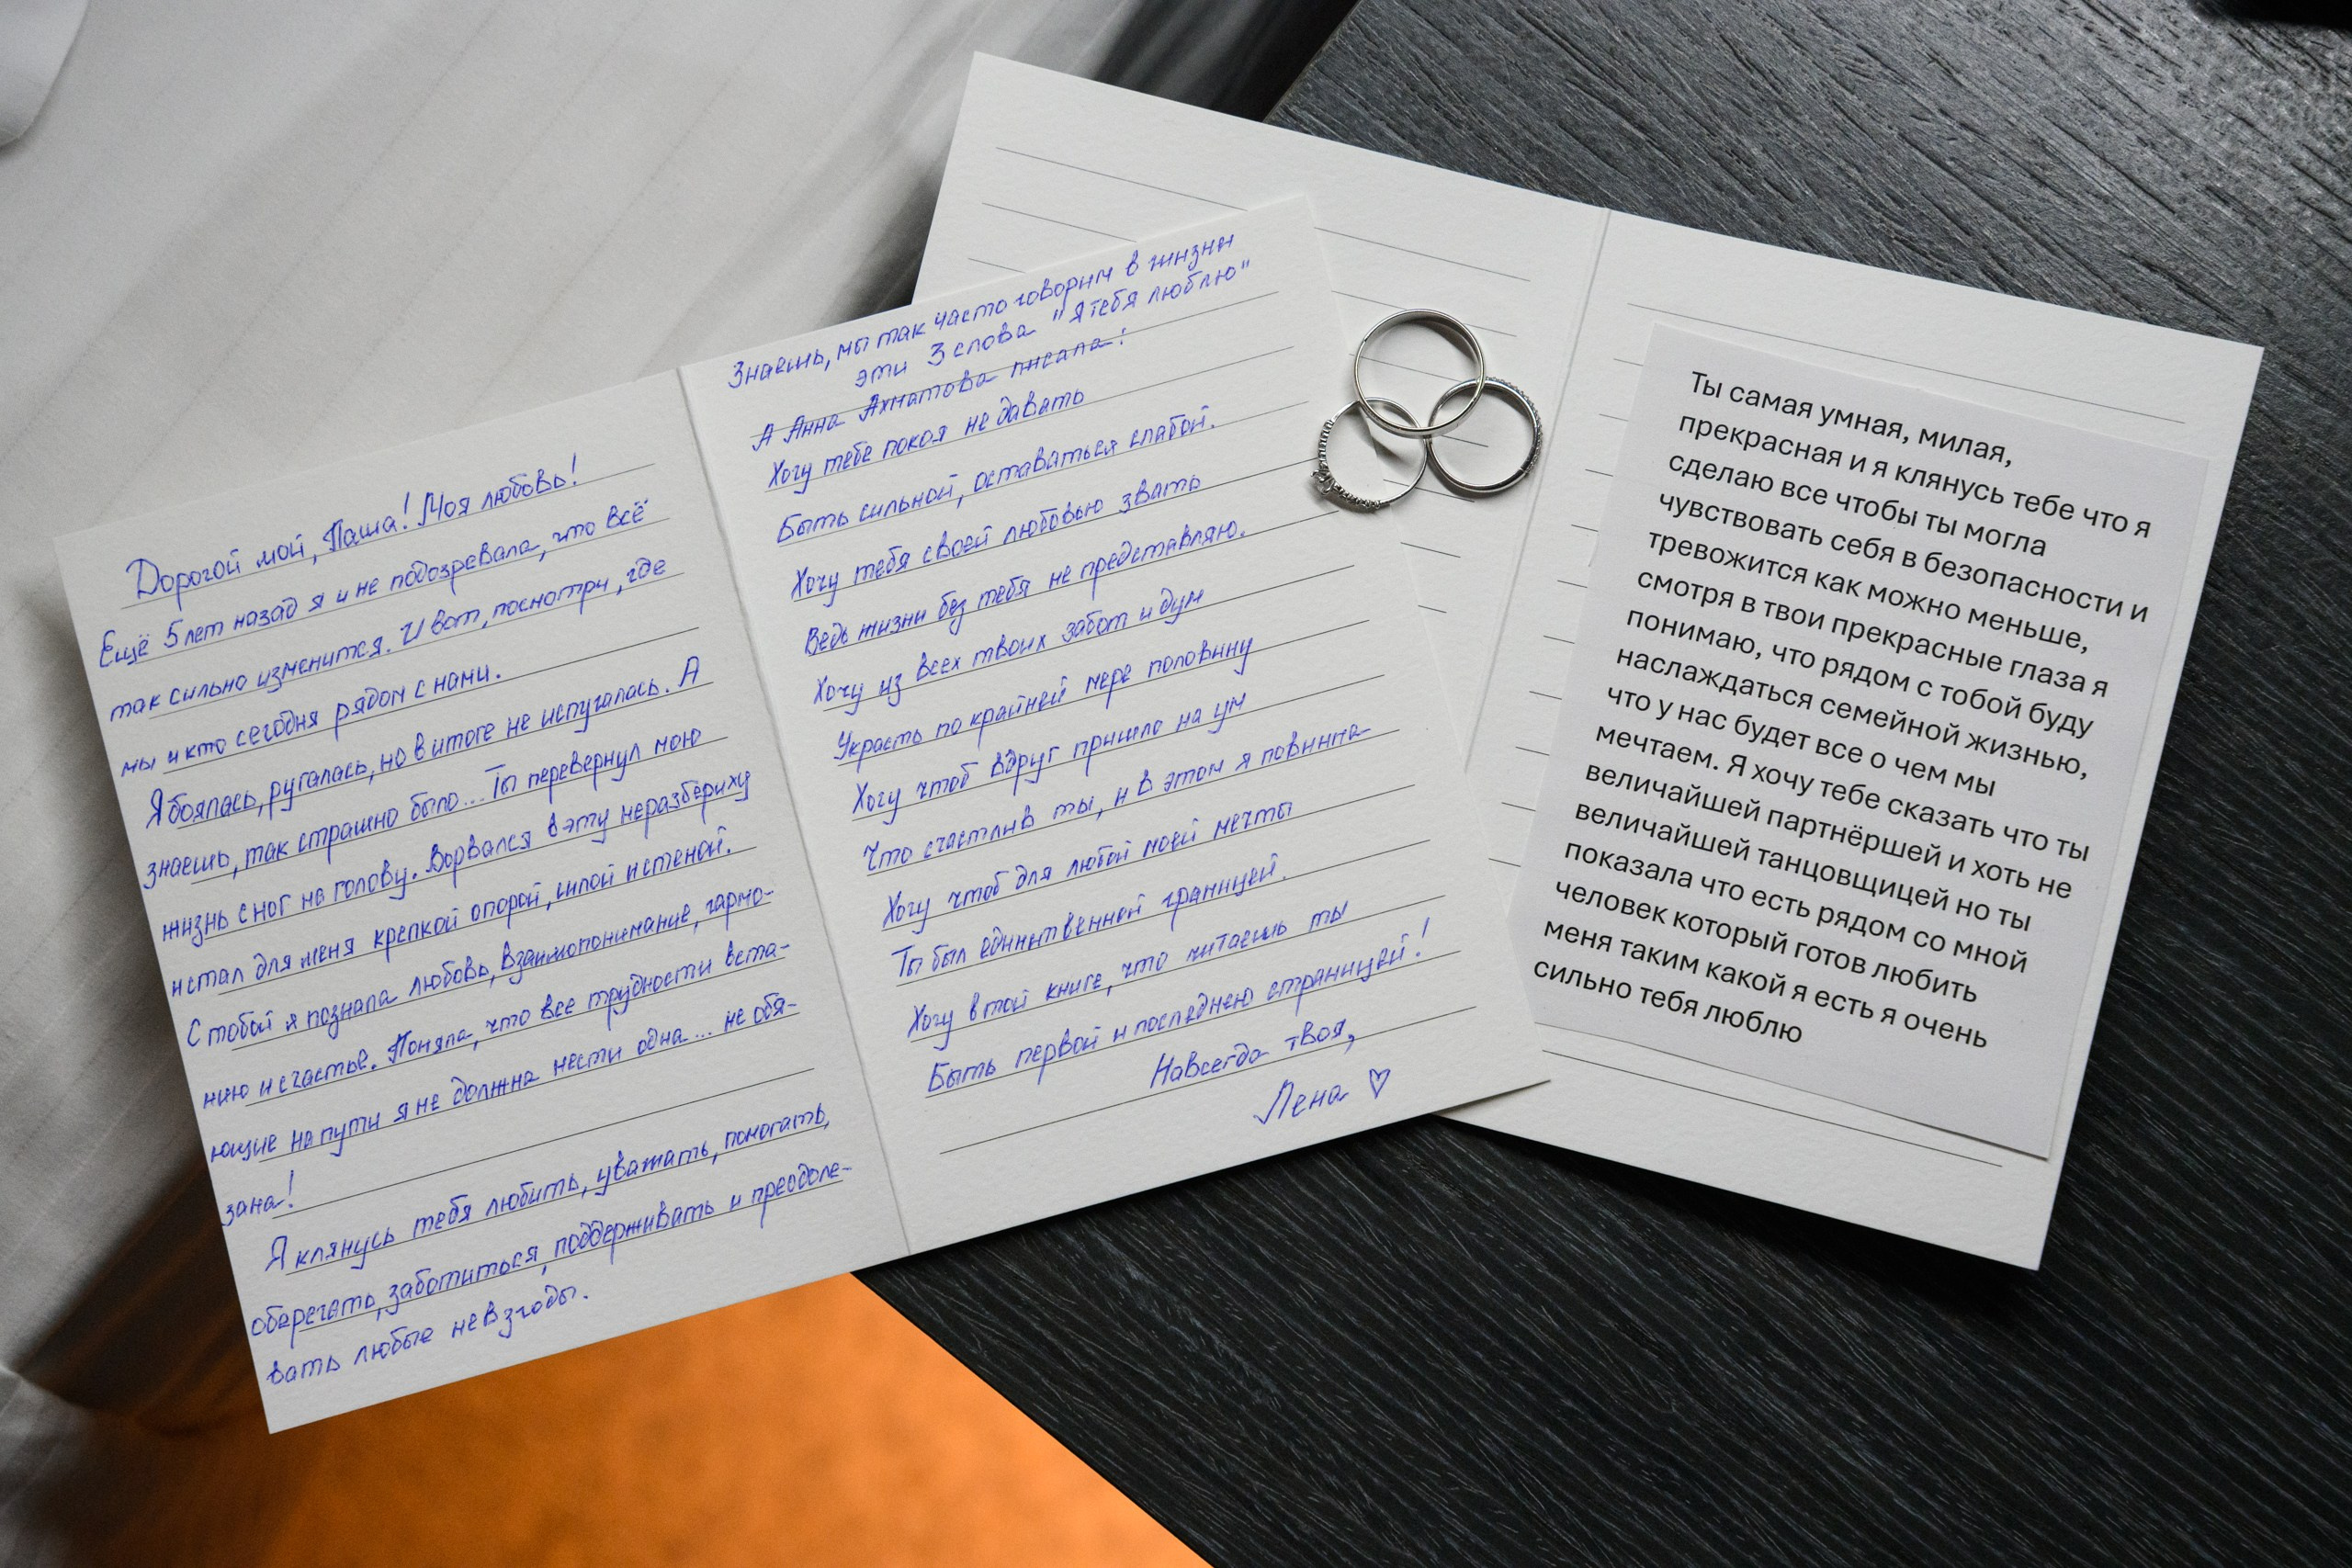 Дорогой мой, Паша! Моя любовь!
Ещё 5 лет назад я и не подозревала, что всё
так сильно изменится. И вот, посмотри, где
мы и кто сегодня рядом с нами.
Я боялась, ругалась, но в итоге не испугалась. А
знаешь, так страшно было... Ты перевернул мою
жизнь с ног на голову. Ворвался в эту неразбериху
и стал для меня крепкой опорой, силой и стеной.
С тобой я познала любовь, взаимопонимание, гармо-
нию и счастье. Поняла, что все трудности вста-
ющие на пути я не должна нести одна... не обя-
зана!
Я клянусь тебя любить, уважать, помогать,
оберегать, заботиться, поддерживать и преодоле-
вать любые невзгоды.
Знаешь, мы так часто говорим в жизни
эти 3 слова "Я тебя люблю"
А Анна Ахматова писала:
Хочу тебе покоя не давать
Быть сильной, оставаться слабой.
Хочу тебя своей любовью звать
Ведь жизни без тебя не представляю.
Хочу из всех твоих забот и дум
Украсть по крайней мере половину
Хочу чтоб вдруг пришло на ум
Что счастлив ты, и в этом я повинна
Хочу чтоб для любой моей мечты
Ты был единственной границей.
Хочу в той книге, что читаешь ты
Быть первой и последнею страницей!
Навсегда твоя,
Лена ♡
Ты самая умная, милая,
прекрасная и я клянусь тебе что я
сделаю все чтобы ты могла
чувствовать себя в безопасности и
тревожится как можно меньше,
смотря в твои прекрасные глаза я
понимаю, что рядом с тобой буду
наслаждаться семейной жизнью,
что у нас будет все о чем мы
мечтаем. Я хочу тебе сказать что ты
величайшей партнёршей и хоть не
величайшей танцовщицей но ты
показала что есть рядом со мной
человек который готов любить
меня таким какой я есть я очень
сильно тебя люблю